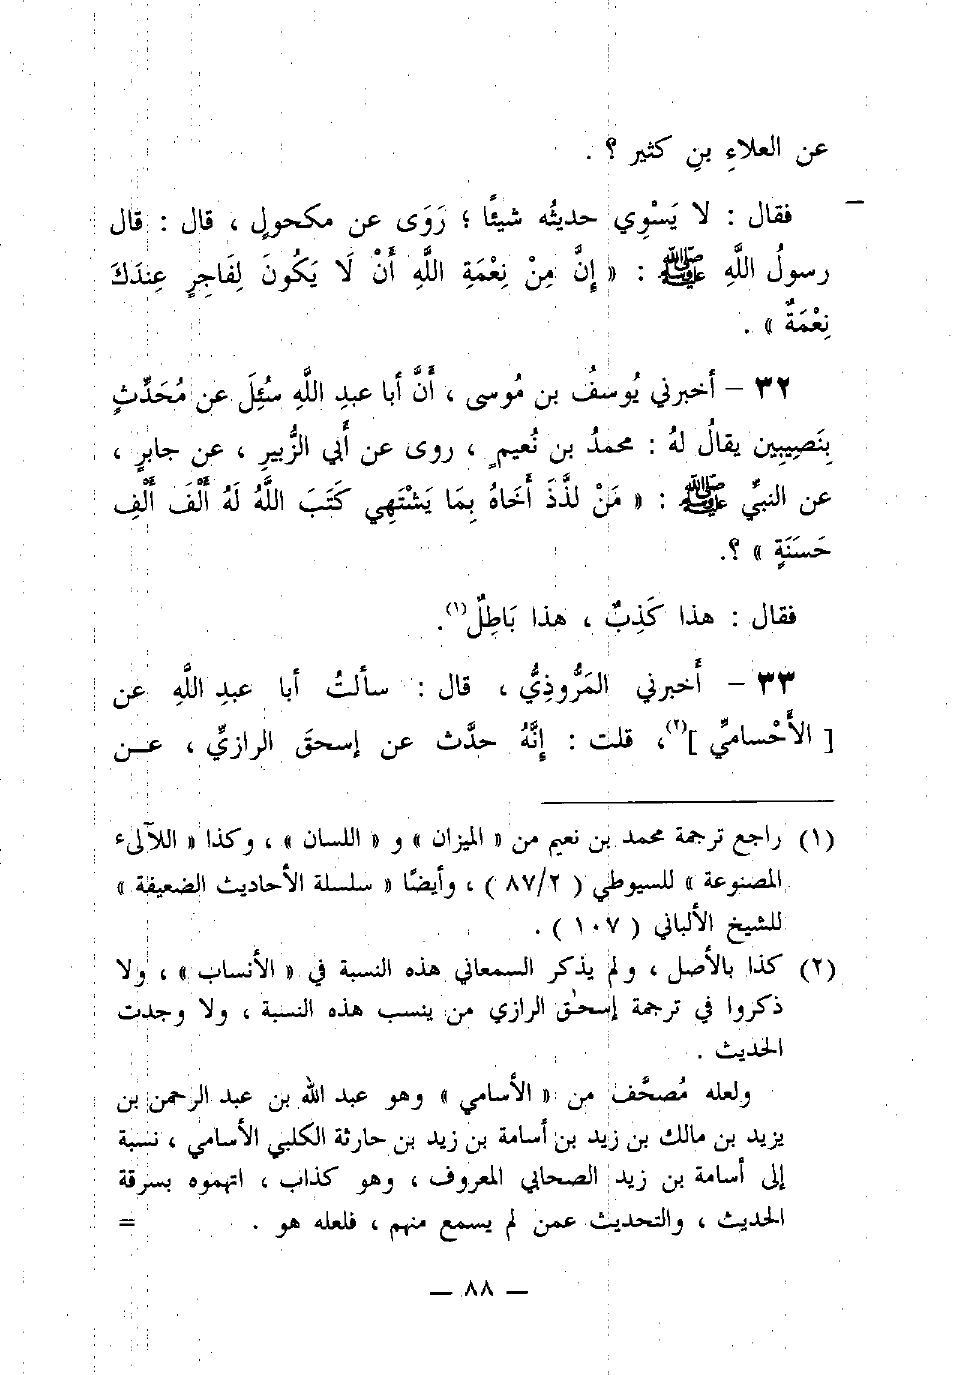 عن العلاءِ بنِ كثير ؟ .
فقال : لا يَسْوِي حديثُه شيئًا ؛ رَوَى عن مكحولٍ ، قال : قال
رسولُ اللَّهِ ﷺ : « إِنَّ مِنْ نِعْمَةِ اللَّهِ أَنْ لَا يَكُونَ لِفَاجِرٍ عِنْدَكَ
نِعْمَةٌ » .
٣٢ – أخبرني يُوسفُ بن مُوسى ، أَنَّ أبا عبدِ اللَّهِ سُئِلَ عن مُحَدِّثٍ
بِنَصِيبِين يقالُ لهُ : محمدُ بن نُعيمٍ ، روى عن أَبي الزُّبيرِ ، عن جابرٍ ،
عن النبيِّ ﷺ : « مَنْ لذَّذَ أَخَاهُ بِمَا يَشْتَهِي كَتَبَ اللَّهُ لَهُ أَلْفَ أَلْفِ
حَسَنَةٍ » ؟.
فقال : هذا كَذِبٌ ، هذا بَاطِلٌ(١).
٣٣ – أَخبرني المَرُّوذِيُّ ، قال : سألتُ أبا عبدِ اللَّهِ عن
[ الأَحْساميِّ ](٢)، قلت : إِنَّهُ حدَّث عن إسحقَ الرازيِّ ، عـن
(١) راجع ترجمة محمد بن نعيم من « الميزان » و « اللسان » ، وكذا « اللآلىء
المصنوعة » للسيوطي ( ٨٧/٢ ) ، وأيضًا « سلسلة الأحاديث الضعيفة »
للشيخ الألباني ( ١٠٧ ) .
(٢) كذا بالأصل ، ولم يذكر السمعاني هذه النسبة في « الأنساب » ، ولا
ذكروا في ترجمة إسحٰق الرازي من ينسب هذه النسبة ، ولا وجدت
الحديث .
ولعله مُصحَّف من « الأسامي » وهو عبد الله بن عبد الرحمن بن
يزيد بن مالك بن زيد بن أسامة بن زيد بن حارثة الكلبي الأسامي ، نسبة
إلى أسامة بن زيد الصحابي المعروف ، وهو كذاب ، اتهموه بسرقة
الحديث ، والتحديث عمن لم يسمع منهم ، فلعله هو . =
— ٨٨ —